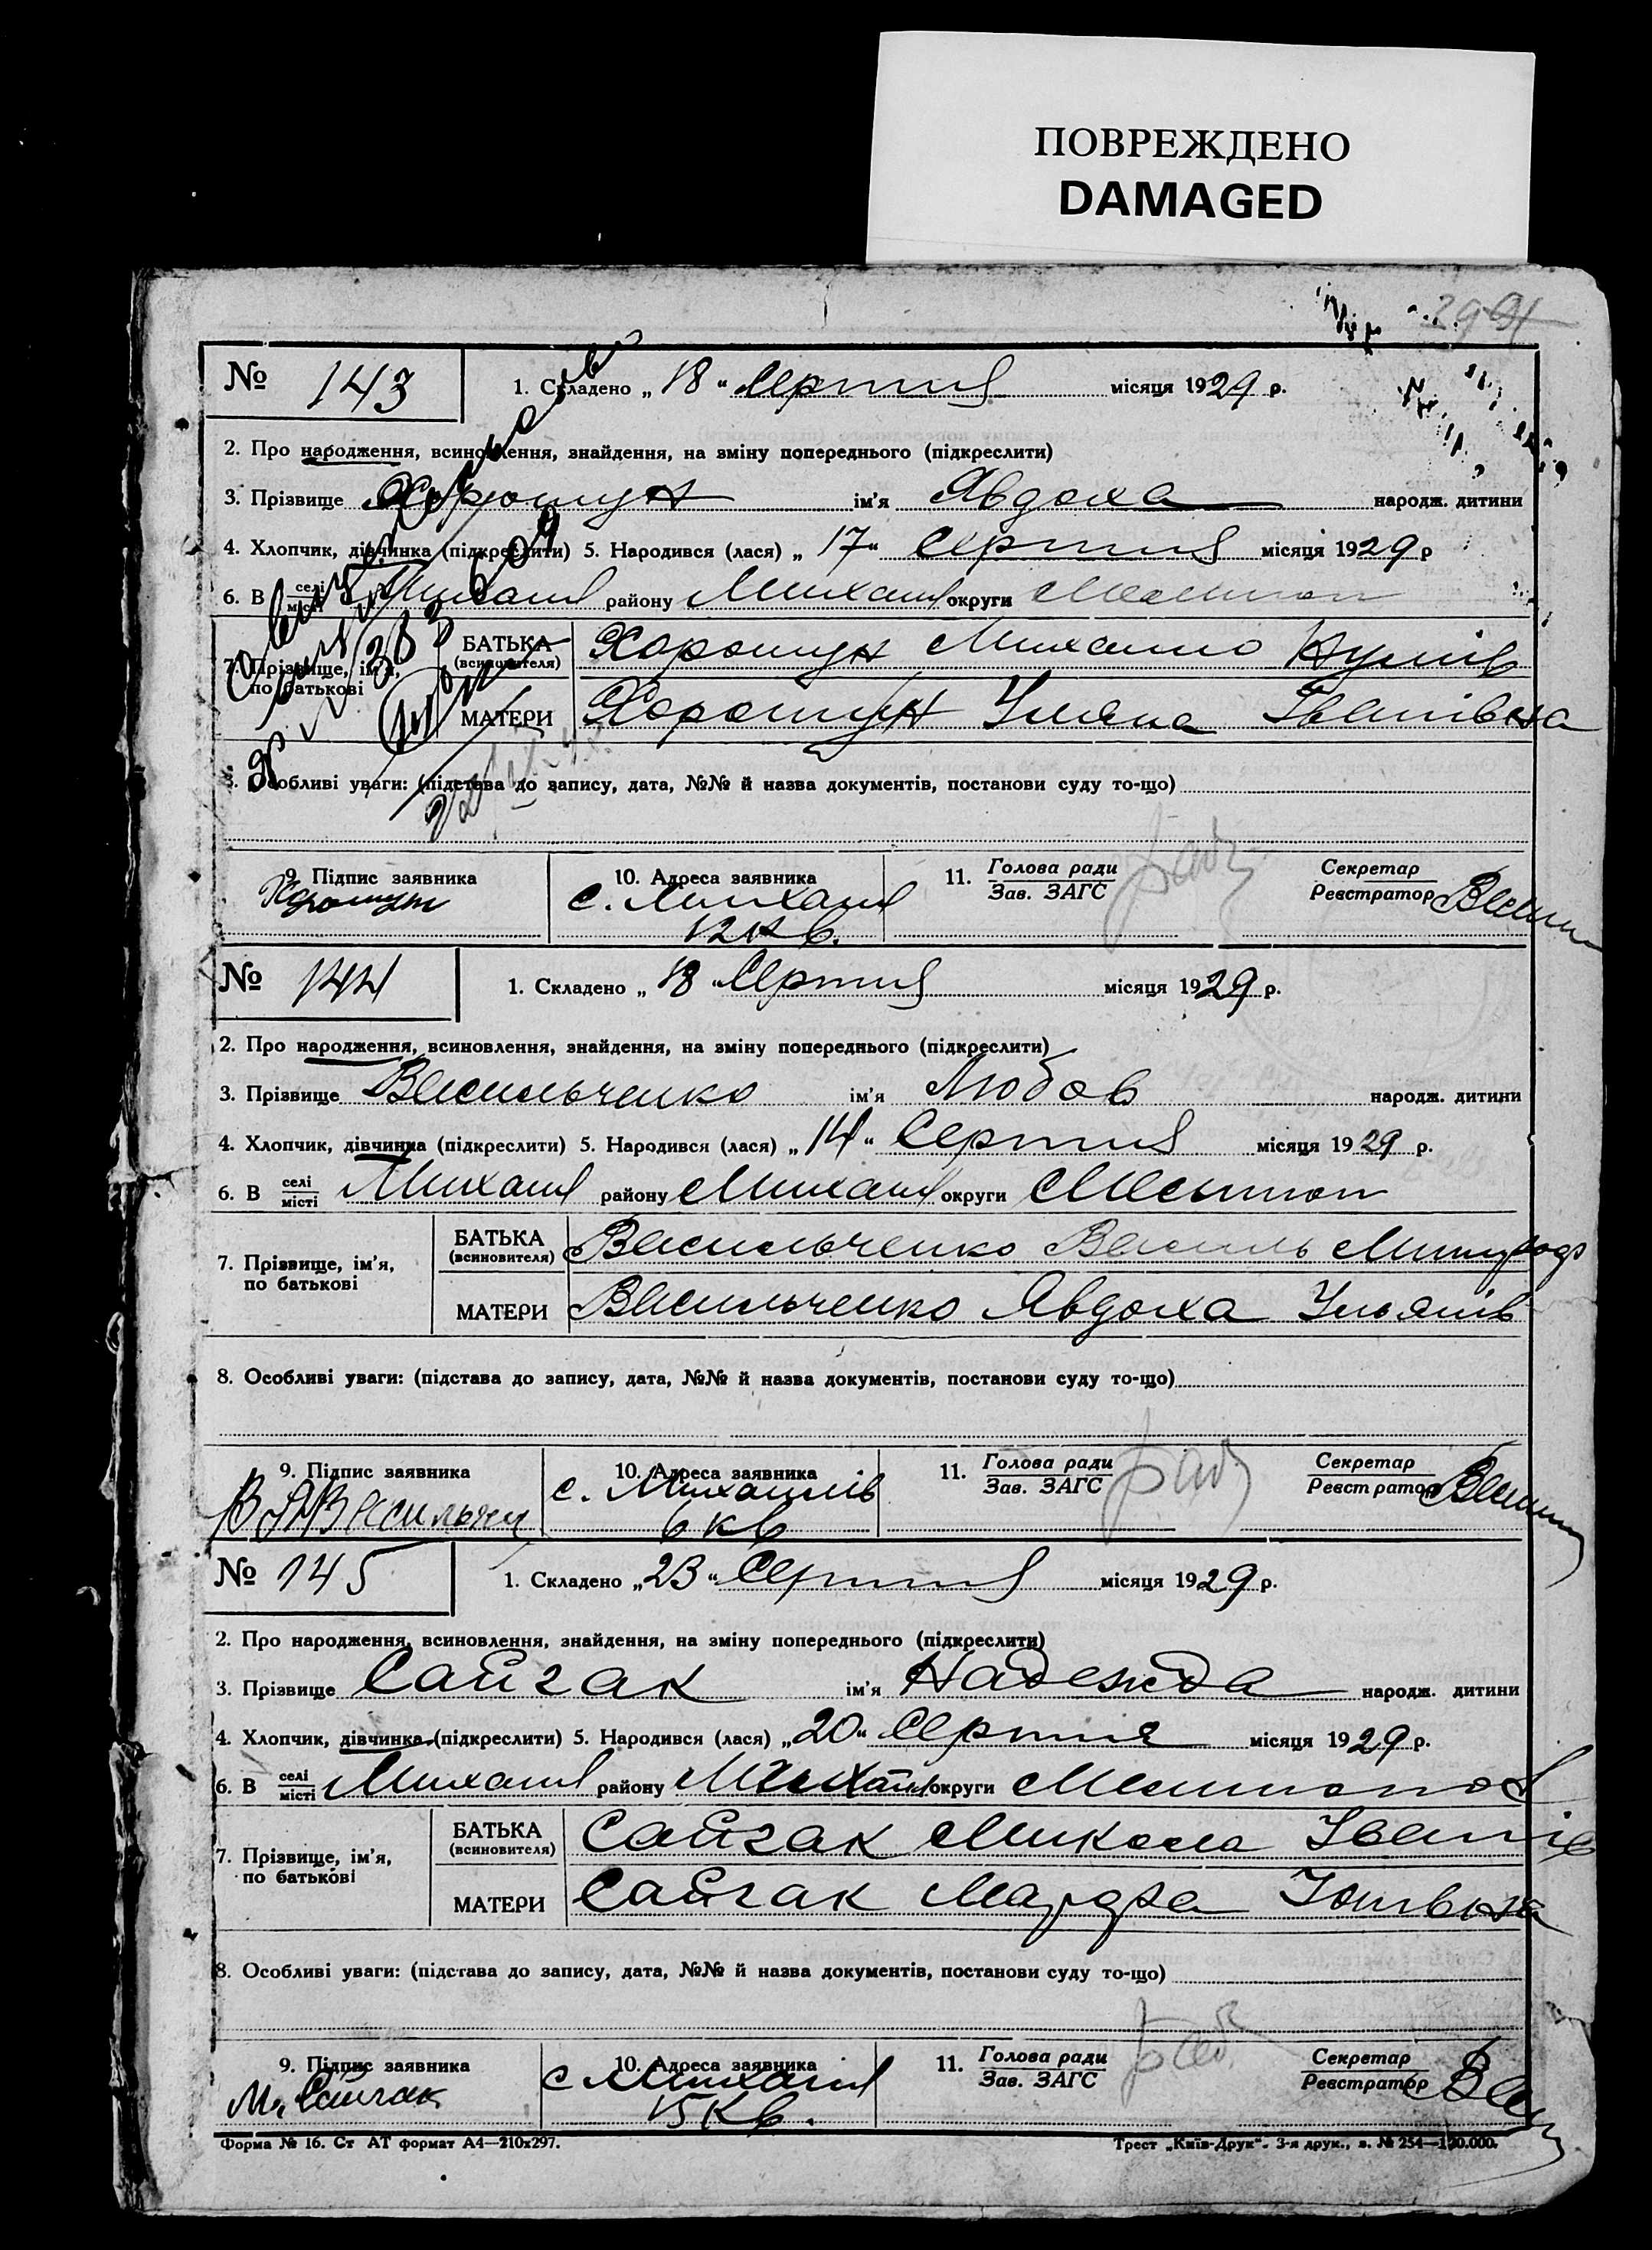 ПОВРЕЖДЕНО
DAMAGED
№ 143 1. Складено „ 18 “ Серпня місяця 1929 р.
2. Про народження, всиновлення, знайдення, на зміну попереднього (підкреслити)
3. Прізвище Хорошун ім'я Явдоха народж. дитини
4. Хлопчик, дівчинка (підкреслити) 5. Народився (лася) „ 17 “ Серпня місяця 1929 р
6. В селі місті Михайл району Михайл округи
7. Прізвище, ім'я, по батькові БАТЬКА (всиновителя) Хорошун Михайло
МАТЕРИ Хорошун Уляна Іванівна
8. Особливі уваги: (підстава до запису, дата, №№ й назва документів, постанови суду то-що)
9. Підпис заявника 10. Адреса заявника 11. Голова ради Зав. ЗАГС Секретар Реєстратор
Хорошун с. Михайл
12 кв.
№ 144 1. Складено „ 18 “ Серпня місяця 1929 р.
2. Про народження, всиновлення, знайдення, на зміну попереднього (підкреслити)
3. Прізвище Васильченко ім'я Любов народж. дитини
4. Хлопчик, дівчинка (підкреслити) 5. Народився (лася) „ 14 “ Серпня місяця 1929 р.
6. В селі місті Михайл району Михайл округи
7. Прізвище, ім'я, по батькові БАТЬКА (всиновителя) Васильченко Василь
МАТЕРИ Васильченко Явдоха Ульянів
8. Особливі уваги: (підстава до запису, дата, №№ й назва документів, постанови суду то-що)
9. Підпис заявника 10. Адреса заявника 11. Голова ради Зав. ЗАГС Секретар Реєстратор
с. Михайлів
6 кв
№ 145 1. Складено „ 23 “ Серпня місяця 1929 р.
2. Про народження, всиновлення, знайдення, на зміну попереднього (підкреслити)
3. Прізвище Сайгак ім'я Надежда народж. дитини
4. Хлопчик, дівчинка (підкреслити) 5. Народився (лася) „ 20 “ Серпня місяця 1929 р.
6. В селі місті Михайл району Михайл округи
7. Прізвище, ім'я, по батькові БАТЬКА (всиновителя) Сайгак Микола Іванів
МАТЕРИ Сайгак Марфа
8. Особливі уваги: (підстава до запису, дата, №№ й назва документів, постанови суду то-що)
9. Підпис заявника 10. Адреса заявника 11. Голова ради Зав. ЗАГС Секретар Реєстратор
М. Сайгак с Михайл
15 кв.
Форма № 16. Ст АТ формат А4—210х297. Трест „Київ-Друк“. 3-я друк., з. № 254—120.000.